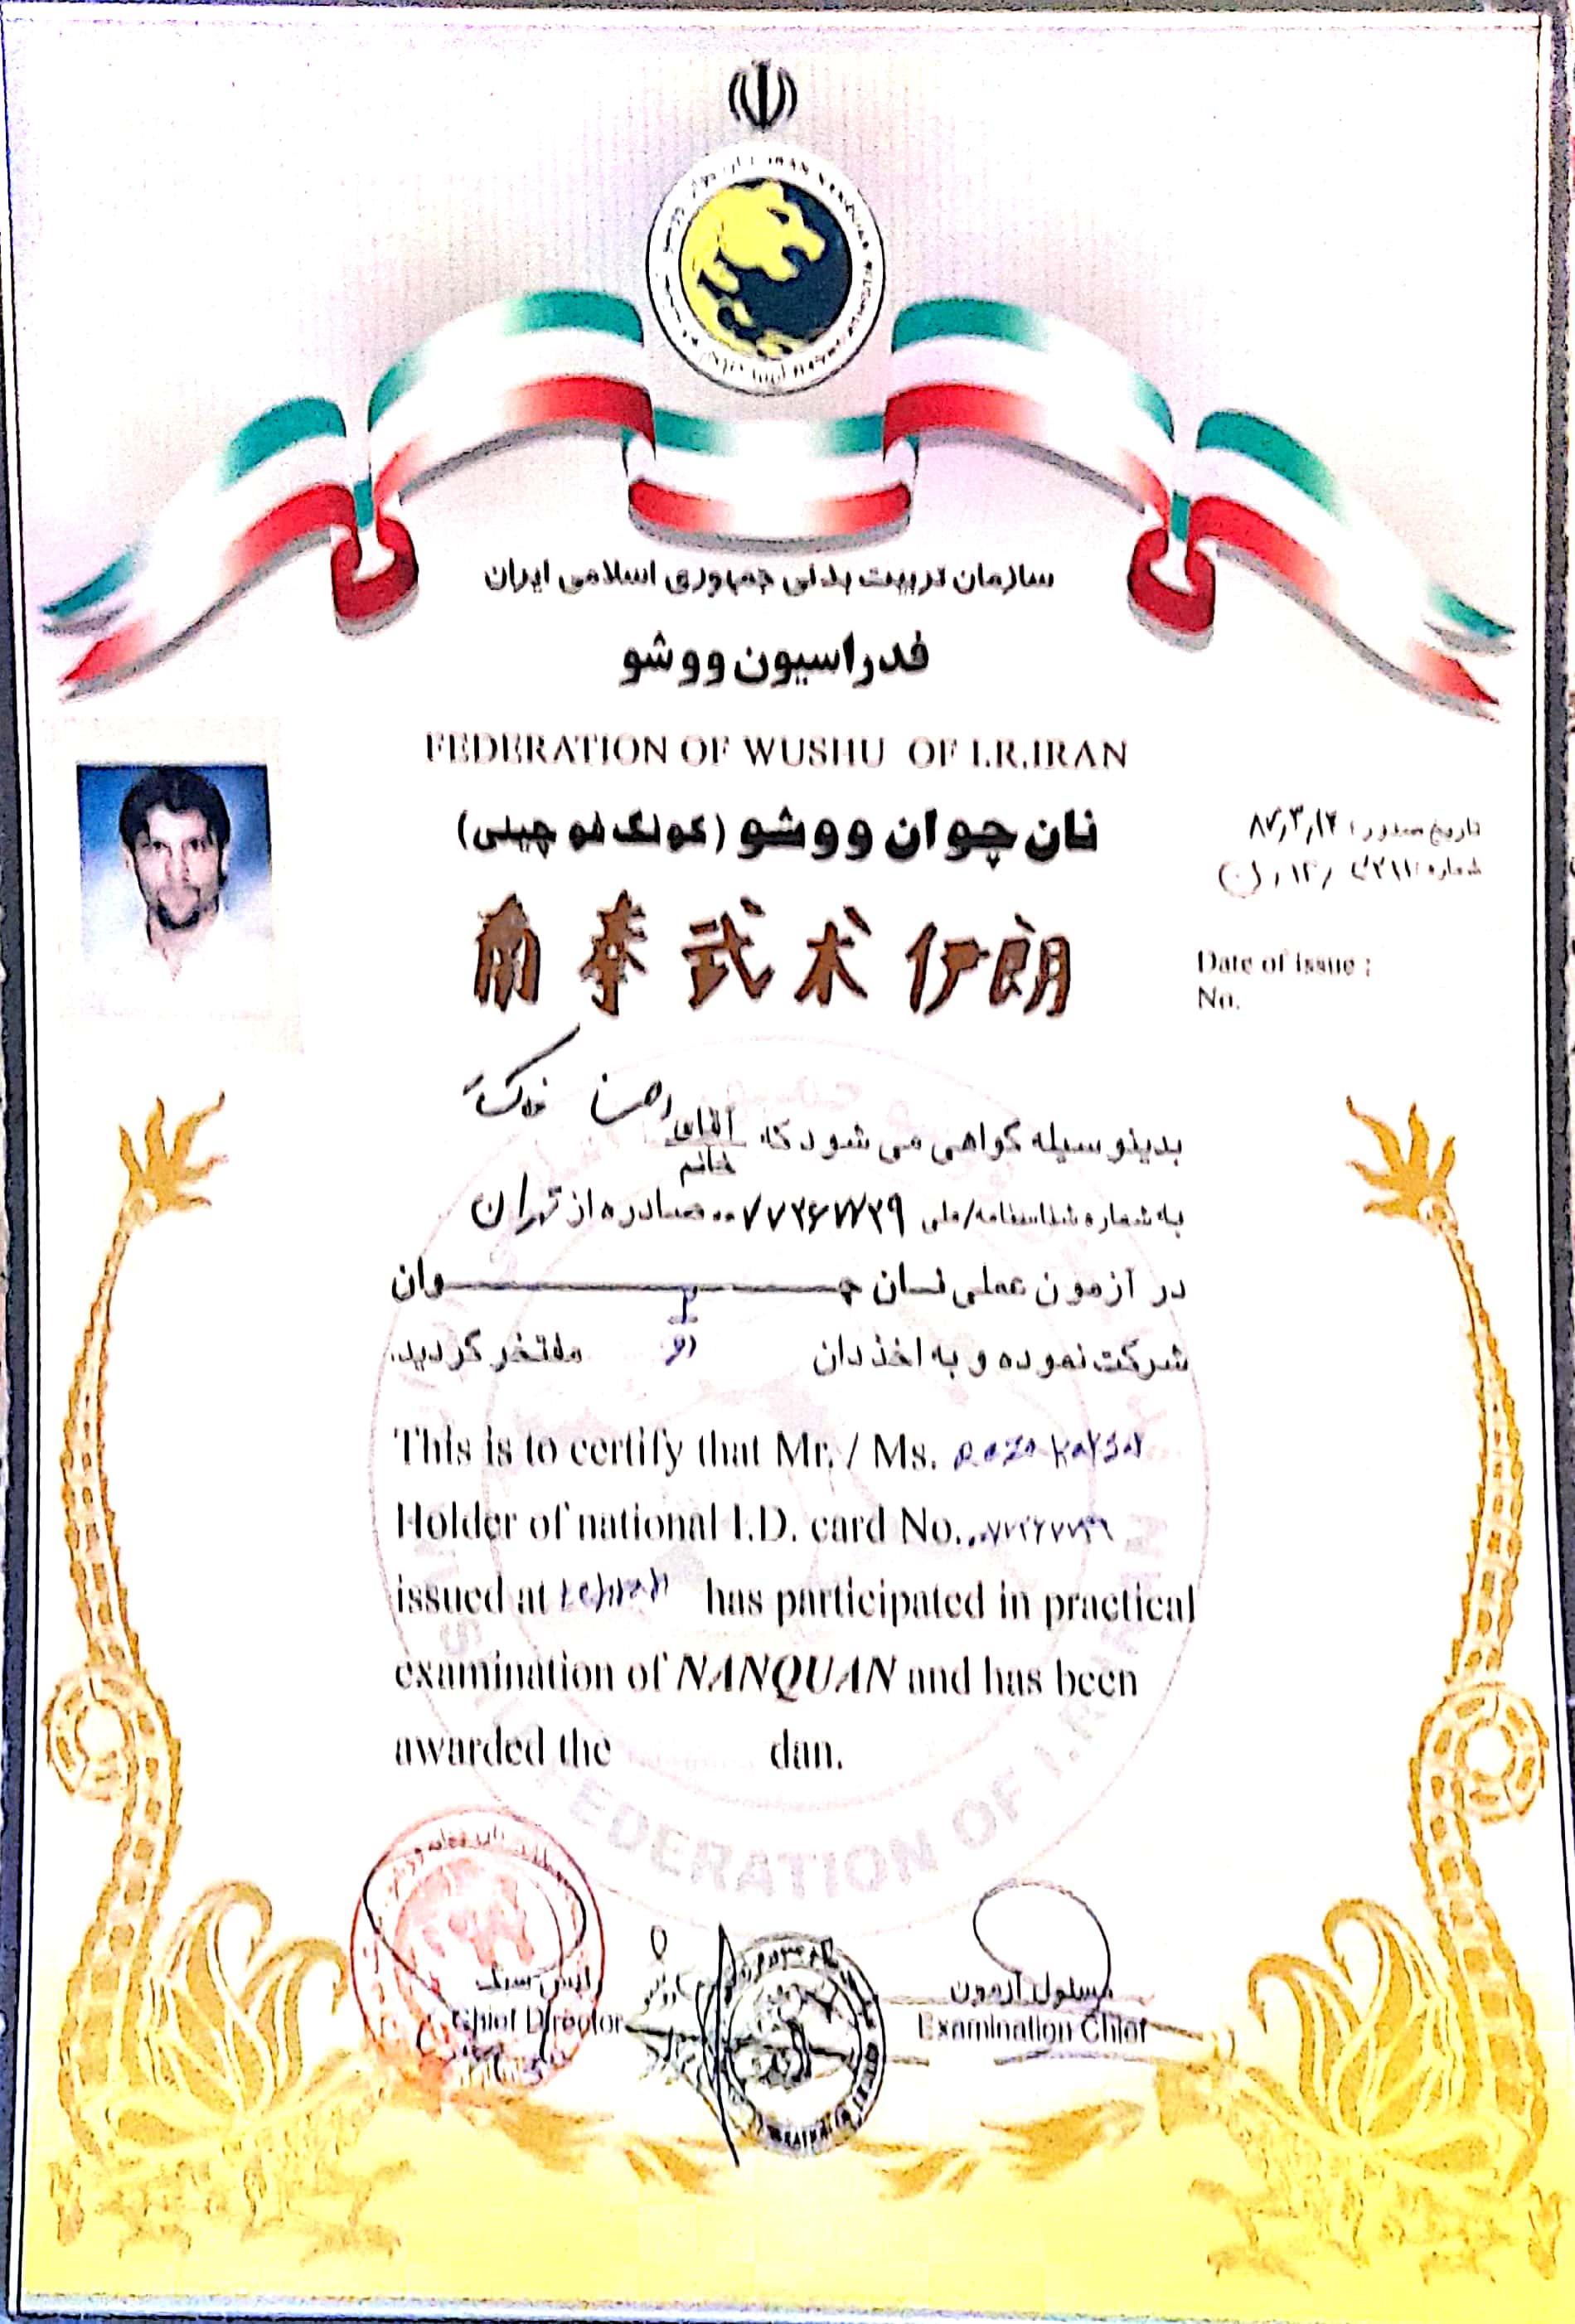 سازمان تربیت بدنی جمهوری اسلامی ایران
فدراسیون ووشو
FEDERATION OF WUSHU OF I.R.IRAN
نان چوان ووشو (کونگ فو چینی)
تاریخ صدور: ۸۷٫۳٫۱۲
شماره:
南拳武术伊朗
Date of issue :
No.
بدینوسیله گواهی می شود که آقای
خانم
به شماره شناسنامه/ملی صادره از تهران
در آزمون عملی نسان چوان
شرکت نموده و به اخذ دان مفتخر گردید.
This is to certify that Mr. / Ms.
Holder of national I.D. card No.
issued at tehran has participated in practical
examination of NANQUAN and has been
awarded the dan.
FEDERATION OF I.R.
رئیس سبک
Chief Director
مسئول آزمون
Examination Chief